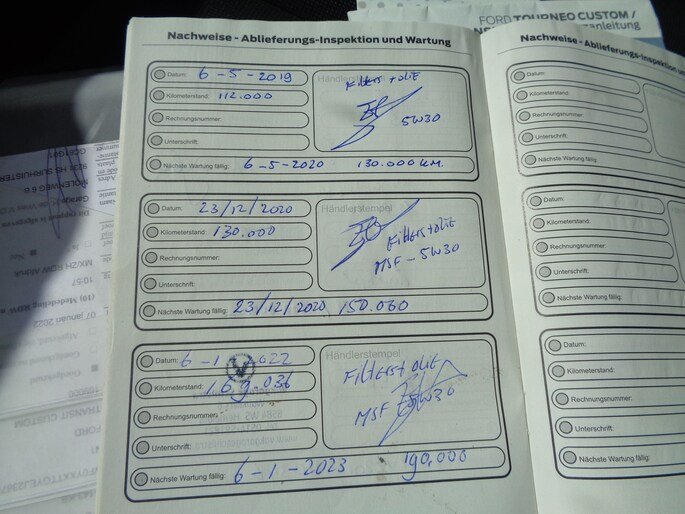 FORD TOURNEO CUSTOM /
Nachweise - Ablieferungs-Inspektion und Wartung
Datum: 6-5-2019
Kilometerstand: 112.000
Rechnungsnummer:
Unterschrift:
Händlerstempel
Filters + OLIE
5W30
Nächste Wartung fällig: 6-5-2020 130.000 KM.
Datum: 23/12/2020
Kilometerstand: 130.000
Rechnungsnummer:
Unterschrift:
Händlerstempel
Filters + OLIE
MSF - 5W30
Nächste Wartung fällig: 23/12/2020 150.000
Datum: 6-1-2022
Kilometerstand: 169.036
Rechnungsnummer:
Unterschrift:
Händlerstempel
Filters + OLIE
MSF 5W30
Nächste Wartung fällig: 6-1-2023 190,000
Nachweise - Ablieferungs-Inspektion
Datum:
Kilometerstand:
Rechnungsnummer:
Unterschrift:
Nächste Wartung fällig:
Datum:
Kilometerstand:
Rechnungsnummer:
Unterschrift:
Nächste Wartung fällig:
Datum:
Kilometerstand:
Rechnungsnummer:
Unterschrift:
Nächste Wartung fällig:
07 januari 2022
TRANSIT CUSTOM
FORD